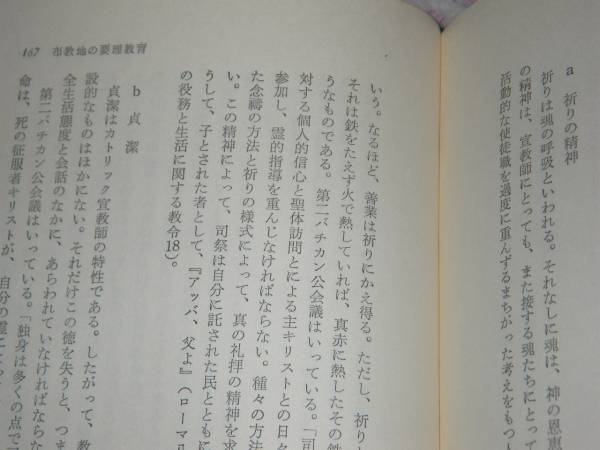 a 祈りの精神
祈りは魂の呼吸といわれる。それなしに魂は、神の恩恵
の精神は、宣教師にとっても、また接する魂たちにとって
活動的な使徒職を過度に重んずるまちがった考えをもつ人
いう。なるほど、善業は祈りにかえ得る。ただし、祈り
それは鉄をたえず火で熱していれば、真赤に熱したその鉄
うなものである。第二バチカン公会議はいっている。「司
対する個人的信心と聖体訪問とによる主キリストとの日々
参加し、霊的指導を重んじなければならない。種々の方法
た念禱の方法と祈りの様式によって、真の礼拝の精神を求
い。この精神によって、司祭は自分に託された民とともに
うして、子とされた者として、『アッバ、父よ』(ローマ八
の役務と生活に関する教令18)。
b 貞潔
貞潔はカトリック宣教師の特性である。したがって、教
設的なものはほかにない。それだけこの徳を失うと、つま
全生活態度と会話のなかに、あらわれていなければならな
第二バチカン公会議はいっている。「独身は多くの点で
命は、死の征服者キリストが、自分の霊によ
167 布教地の要理教育